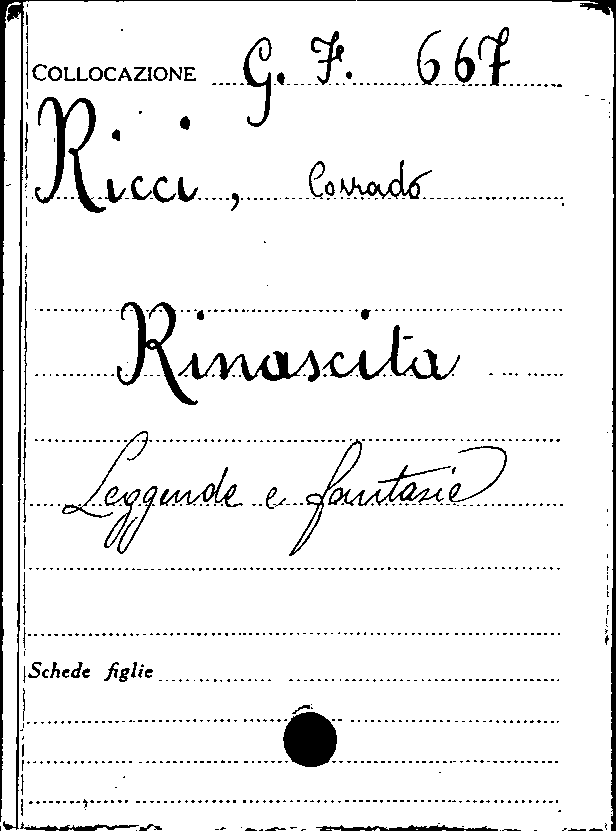 COLLOCAZIONE G. F. 667
Ricci, Corrado
Rinascita
Leggende e fantasie
Schede figlie